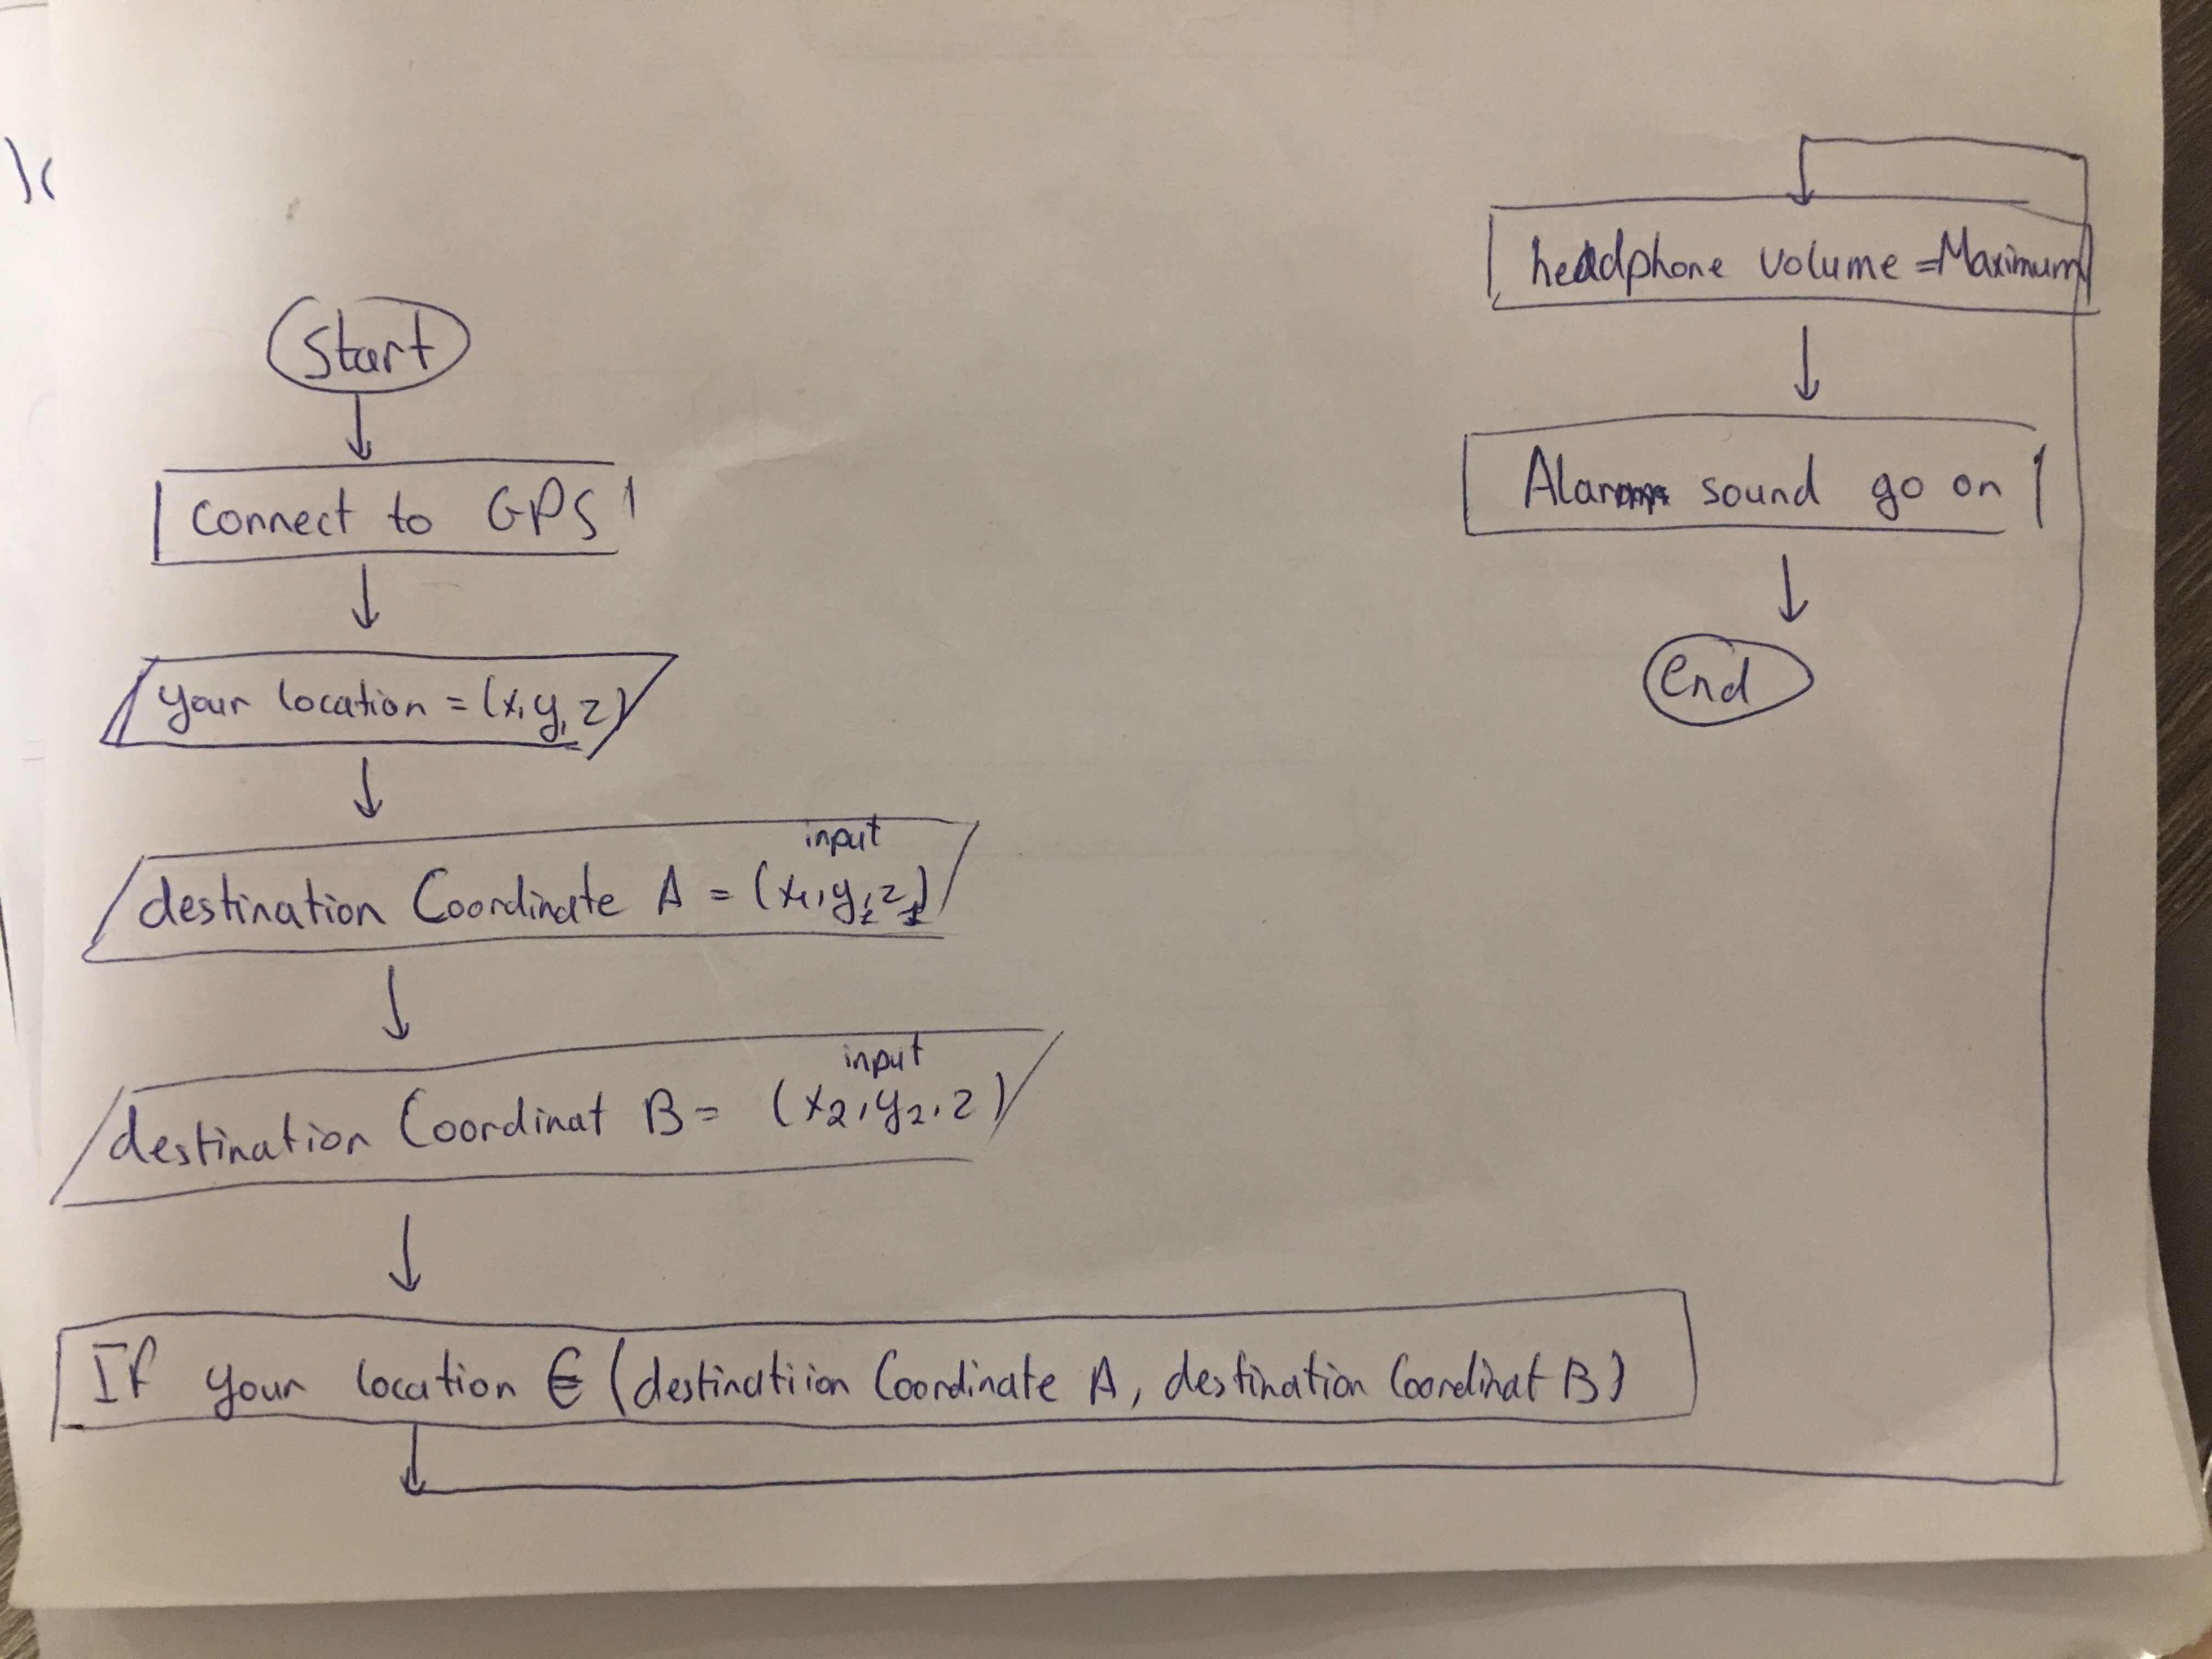 Start
connect to GPS
your location = (x,y,z)
input
destination Coordinate A = (x1,y1,z)
input
destination Coordinat B = (x2,y2,z)
If your location ∈ (destination Coordinate A, destination Coordinat B)
headphone volume = Maximum
Alarm sound go on
end